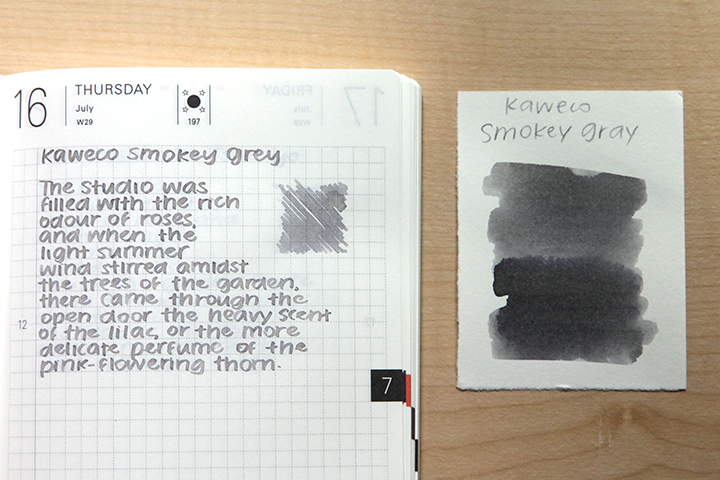 16
THURSDAY
July
W29
197
Kaweco Smokey grey
The studio was
filled with the rich
odour of roses,
and when the
light summer
wind stirred amidst
the trees of the garden,
there came through the
12
open door the heavy scent
of the lilac, or the more
delicate perfume of the
pink-flowering thorn.
7
FRIDAY
17
July
W29
Kaweco
Smokey gray